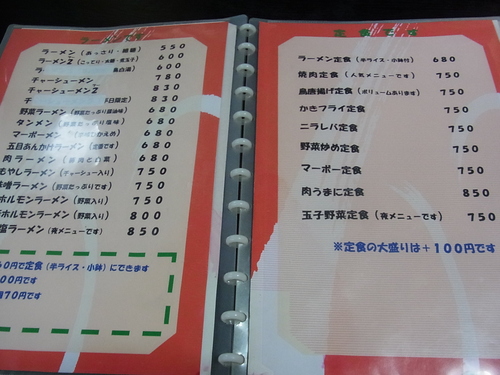 ラーメンです
ラーメン（あっさり・醤油） 550
ラーメン2（こってり・醤・煮玉子） 600
ラ 鳥白湯） 600
チャーシューメン 780
チャーシューメン2 830
チ 日限定） 830
野菜ラーメン（野菜たっぷり醤油味） 680
タンメン（野菜たっぷり塩味） 680
マーボーメン 680
五目あんかけラーメン（定番です） 680
肉ラーメン 680
もやしラーメン（チャーシュー入り） 750
味噌ラーメン（野菜たっぷりです） 750
ホルモンラーメン（野菜入り） 750
ホルモンラーメン（野菜入り） 800
塩ラーメン（夜メニューです） 850
0円で定食（半ライス・小鉢）にできます
00円です
70円です
定食です
ラーメン定食（半ライス・小鉢付） 680
焼肉定食（人気メニューです） 750
鳥唐揚げ定食（ボリュームあります） 750
かきフライ定食 750
ニラレバ定食 750
野菜炒め定食 750
マーボー定食 750
肉うまに定食 850
玉子野菜定食（夜メニューです） 750
※定食の大盛りは＋100円です